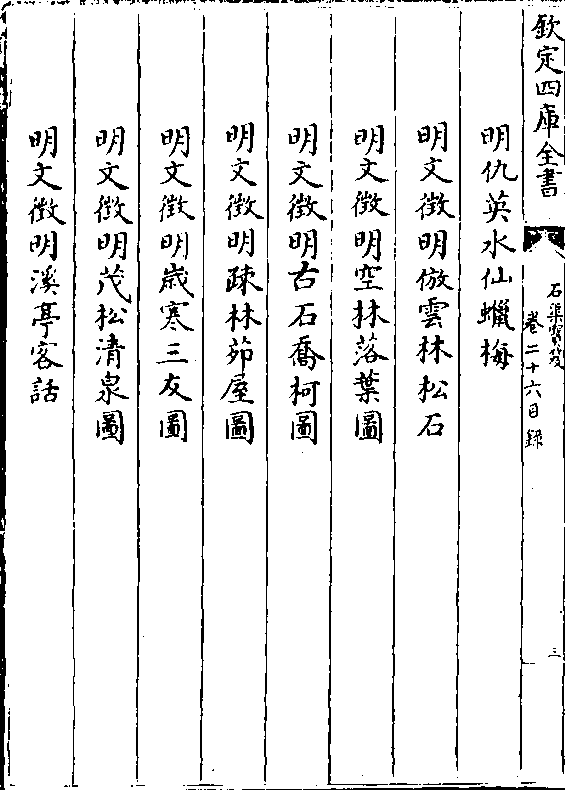 欽定四庫全書
石渠寶笈
卷二十六目錄
三
明仇英水仙蠟梅
明文徴明倣雲林松石
明文徴明空林落葉圖
明文徴明古石喬柯圖
明文徴明疎林茆屋圖
明文徴明歲寒三友圖
明文徴明茂松清泉圖
明文徴明溪亭客話